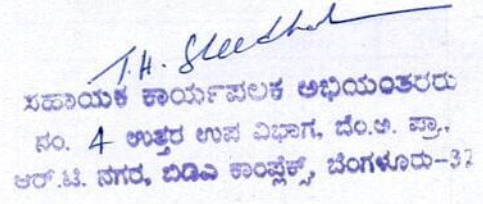 T.H.
ಸಹಾಯಕ ಕಾರ್ಯಪಾಲಕ ಅಭಿಯಂತರರು
ನಂ. 4 ಉತ್ತರ ಉಪ ವಿಭಾಗ, ಬೆಂ.ಅ. ಪ್ರಾ.,
ಆರ್.ಟಿ. ನಗರ, ಬಿಡಿಎ ಕಾಂಪ್ಲೆಕ್ಸ್, ಬೆಂಗಳೂರು-32